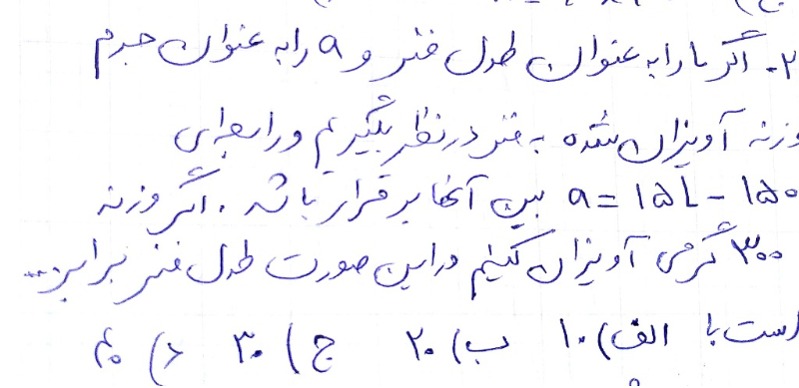 ۲- اگر L را به عنوان طول فنر و a را به عنوان جرم
وزنه آویزان شده به فنر در نظر بگیریم و رابطه‌ای
a = ۱۵L - ۱۵۰ بین آنها برقرار باشد. اگر وزنه
۳۰۰ گرمی آویزان کنیم در این صورت طول فنر برابر...
است با الف) ۱۰ ب) ۲۰ ج) ۳۰ د) ۴۰